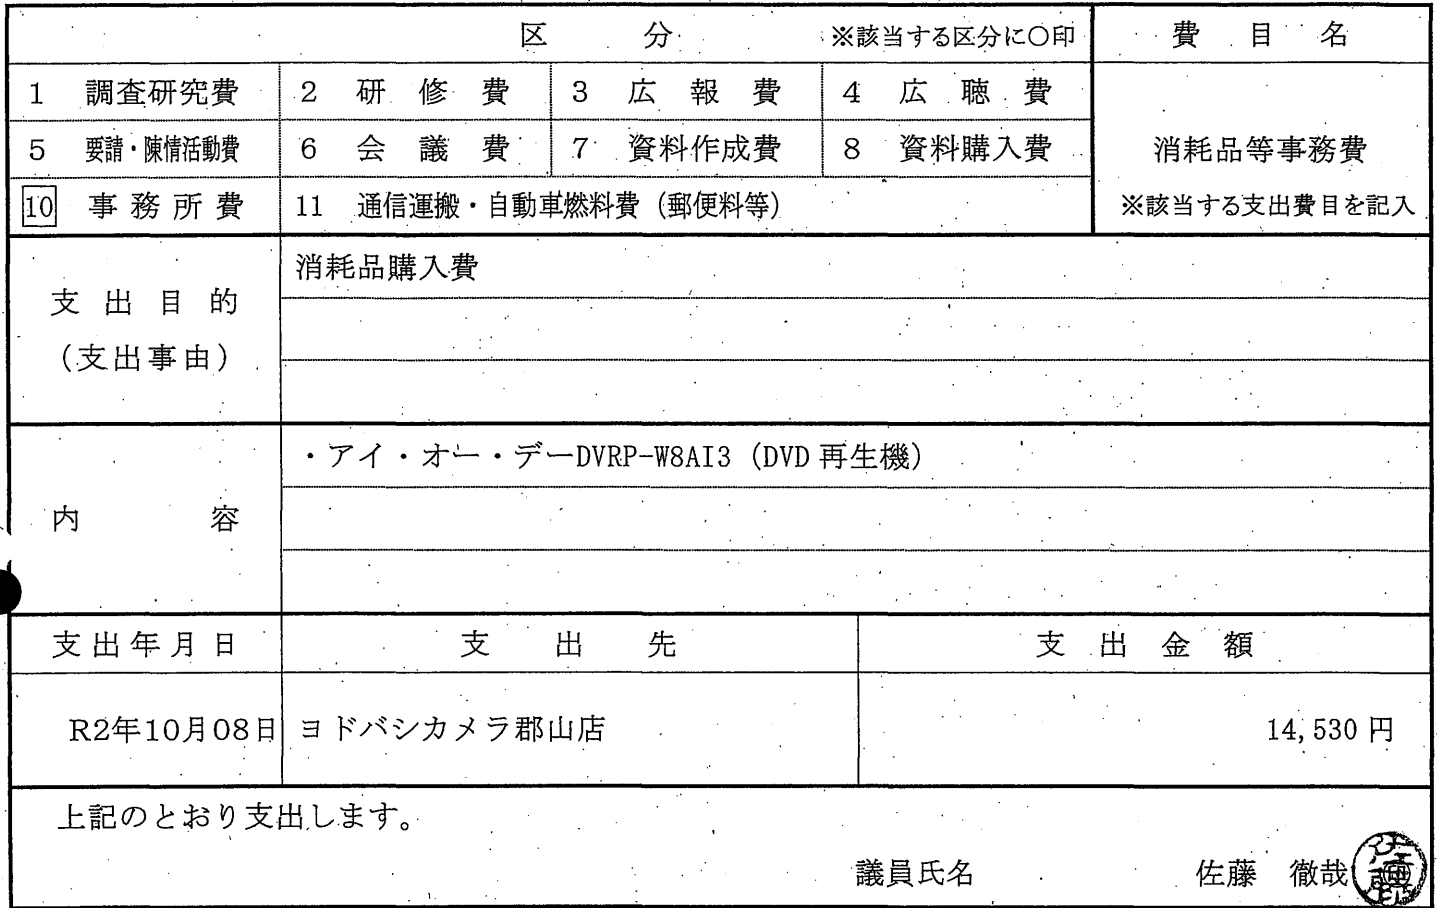 区 分 ※該当する区分に○印 費目名
1 調査研究費 2 研修費 3 広報費 4 広聴費
5 要請・陳情活動費 6 会議費 7 資料作成費 8 資料購入費 消耗品等事務費
10 事務所費 11 通信運搬・自動車燃料費（郵便料等） ※該当する支出費目を記入
消耗品購入費
支出目的
（支出事由）
・アイ・オー・デーDVRP-W8AI3（DVD再生機）
内容
支出年月日 支出先 支出金額
R2年10月08日 ヨドバシカメラ郡山店 14,530円
上記のとおり支出します。
議員氏名 佐藤 徹哉